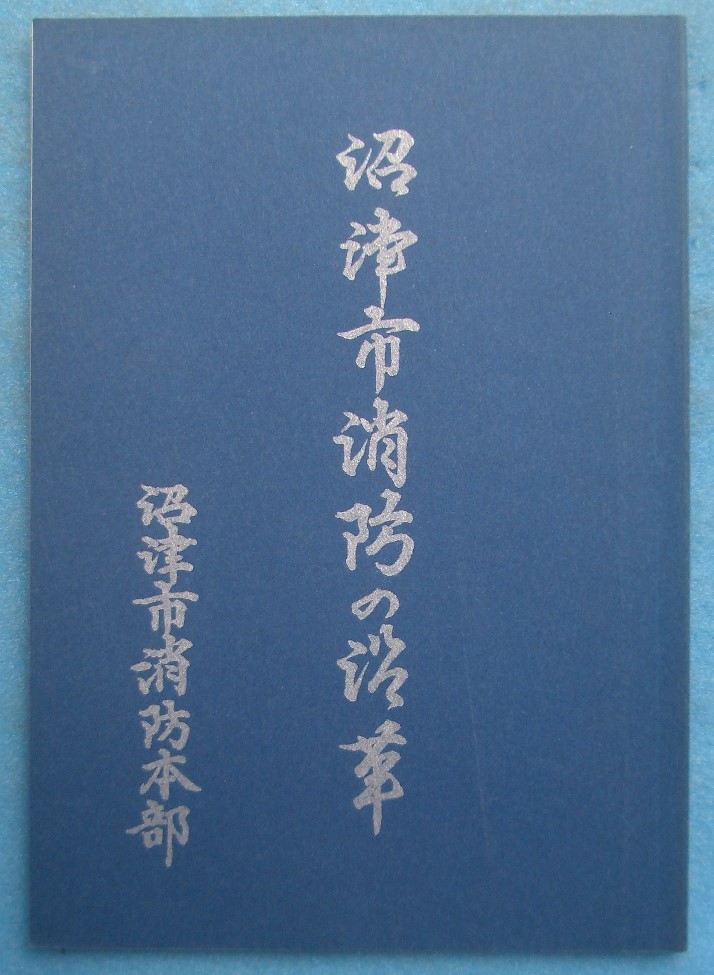 沼津市消防の沿革
沼津市消防本部